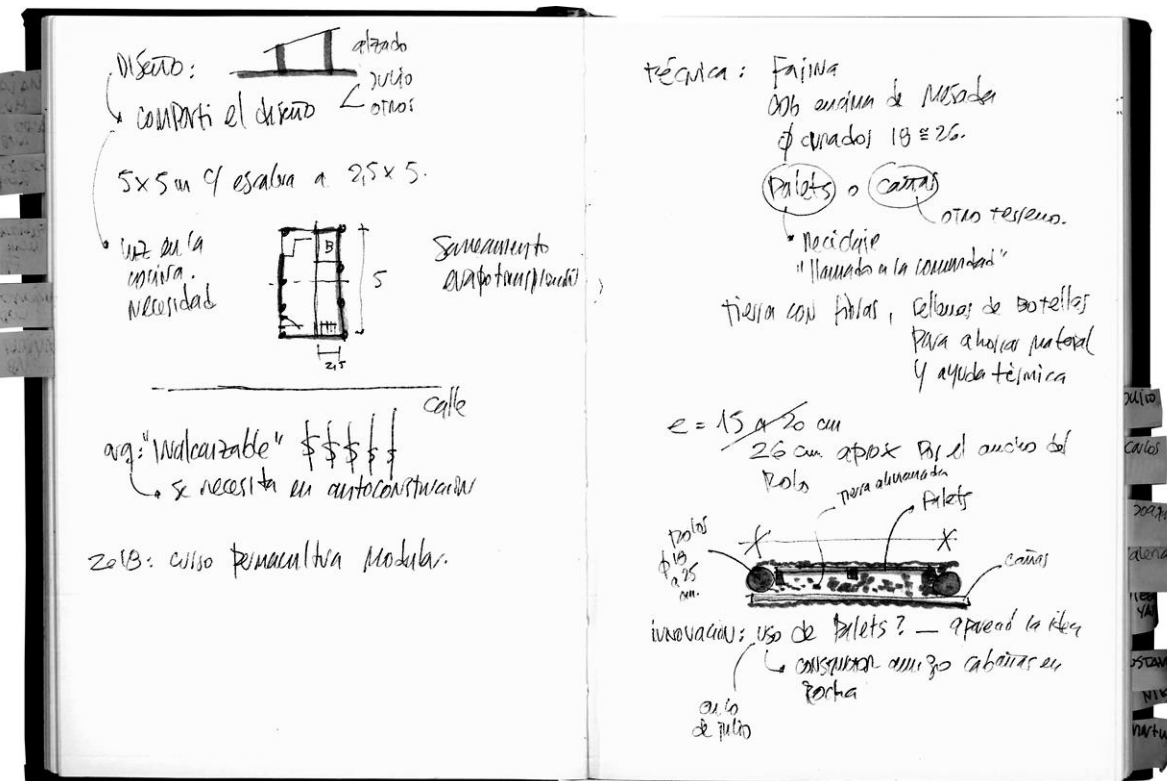 Diseño:
alzado
Julio
otros
compartí el diseño
5x5 m y escalera a 2,5 x 5.
luz en la
cocina.
Necesidad
B
5
2,5
Saneamiento
evapotranspiración
calle
arq: "inalcanzable" $ $ $ $ $
se necesita en autoconstrucción
2018: curso permacultura modular.
técnica: Fajina
cob encima de
φ curados 18 ≅ 26.
Palets o cañas
otro terreno.
Reciclaje
"llamado a la comunidad"
tierra con fibras, rellenas de Botellas
para ahorrar material
y ayuda térmica
e = 15 a 20 cm
26 cm aprox por el ancho del
Rolo
tierra alivianada
Palets
Rolos
φ 18
a 25
cm.
cañas
innovación: uso de Palets? — apareció la idea
constructor amigo cabañas en
Rocha
de julio
Julio
Carlos